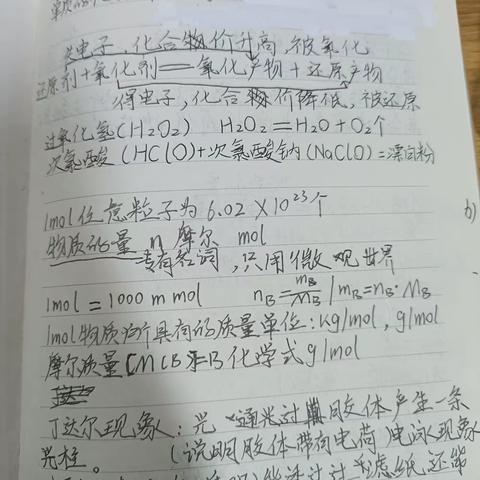 失电子,化合物价升高,被氧化
还原剂+氧化剂=氧化产物+还原产物
得电子,化合物价降低,被还原
过氧化氢(H₂O₂) H₂O₂=H₂O+O₂个
次氯酸(HClO)+次氯酸钠(NaClO)=漂白粉
1mol任意粒子为6.02×10²³个
物质的量 n 摩尔 mol
专有名词,只用微观世界
1mol=1000mmol n_B=m_B/M_B | m_B=n_B·M_B
1mol物质所具有的质量单位:kg/mol,g/mol
摩尔质量 M(B) B化学式g/mol
丁达尔现象:光通过 胶体产生一条
光柱。(说明胶体带有电荷 电泳现象